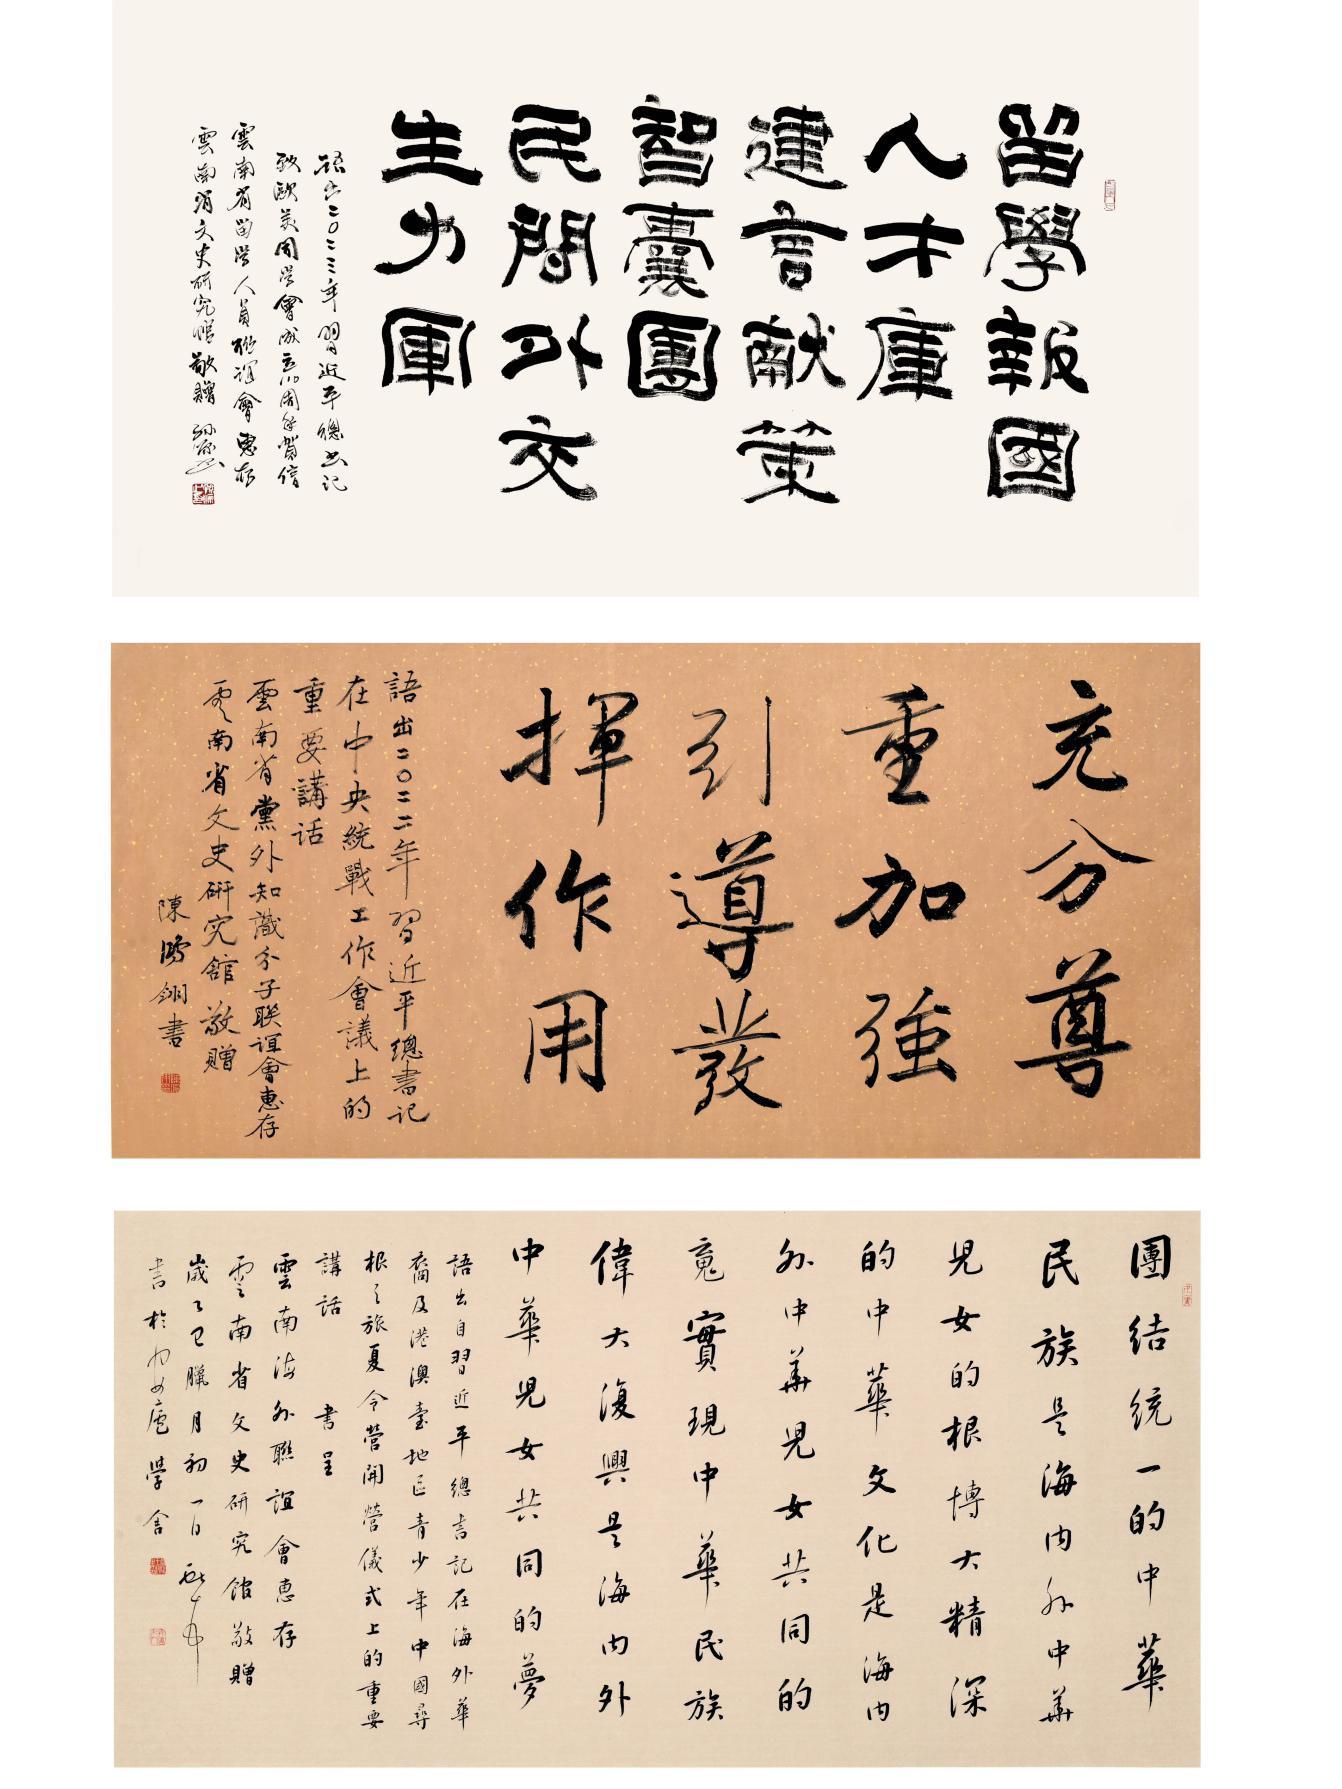 留學報國
人才庫
建言献策
智囊團
民間外交
生力軍
語出二〇二三年習近平總书记
致歐美同学會成立110周年賀信
雲南省留学人員聯誼會惠存
雲南省文史研究館敬贈
充分尊
重加強
引導發
揮作用
語出二〇二二年習近平總書記
在中央統戰工作會議上的
重要講話
雲南省黨外知識分子聯誼會惠存
雲南省文史研究館敬贈
陳鴻翎書
團结统一的中華
民族是海内外中華
兒女的根博大精深
的中華文化是海内
外中華兒女共同的
䰟實現中華民族
偉大復興是海内外
中華兒女共同的夢
語出自習近平總書記在海外華
裔及港澳臺地区青少年中國尋
根之旅夏令營開營儀式上的重要
講話 書呈
雲南海外聯誼會惠存
雲南省文史研究館敬贈
歲乙巳臘月初一日
書於廬學舍